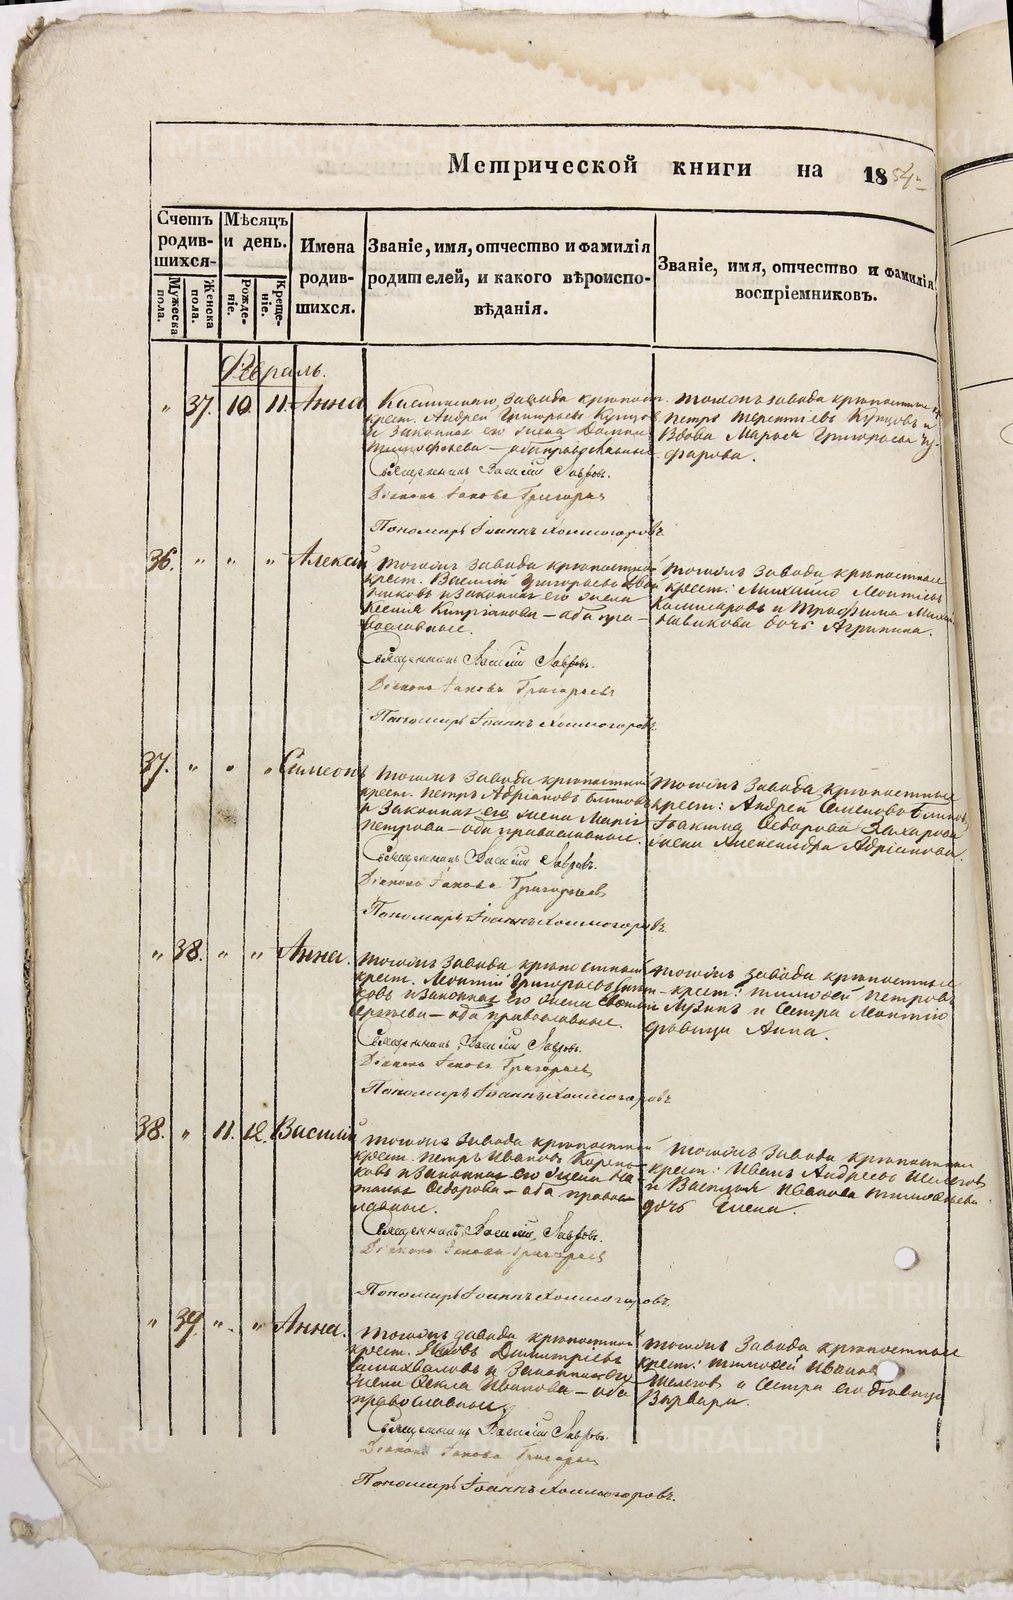 Метрической книги на 1854
Счетъ родив-шихся.
Мужеска пола.
Женска пола.
Мѣсяцъ и день.
Рожде-ніе.
Креще-ніе.
Имена родив-шихся.
Званіе, имя, отчество и фамилія родителей, и какого вѣроиспо-вѣданія.
Званіе, имя, отчество и фамилія воспріемниковъ.
Февраль.
" 37. 10. 11. Анна
завода крѣпост.
крест. Андрей Григорьевъ Купцовъ
и законная его жена Домна
Тимофѣева – оба православные
Священникъ Василій Лавровъ.
Діаконъ Іаковъ Григорьевъ
Пономарь Іоаннъ Холмогоровъ.
Тогожъ завода крѣпостные
Петръ Терентіевъ Купцовъ и
Вдова Марья Григорьева
36. " " " Алексей
Тогожъ завода крѣпостной
крест. Василій Григорьевъ
и законная его жена
Ксенія Кипріанова – оба пра-
вославные.
Священникъ Василій Лавровъ.
Діаконъ Іаковъ Григорьевъ
Пономарь Іоаннъ Холмогоровъ.
Тогожъ завода крѣпостные
крест: Михайло Леонтіевъ
Комисаровъ и Трофима
дочь Агрипина.
37. " " " Симеонъ
Тогожъ завода крѣпостной
крест. Петръ Адріановъ Блиновъ
и законная его жена Марія
Петрова – оба православные.
Священникъ Василій Лавровъ.
Діаконъ Іаковъ Григорьевъ
Пономарь Іоаннъ Холмогоровъ.
Тогожъ завода крѣпостные
крест: Андрей Семеновъ Блиновъ,
Іоакима Ѳедорова Захарова
жена Александра Адріанова.
" 38. " " Анна.
Тогожъ завода крѣпостной
крест. Леонтій Григорьевъ
и законная его жена
Сергѣева – оба православные.
Священникъ Василій Лавровъ.
Діаконъ Іаковъ Григорьевъ
Пономарь Іоаннъ Холмогоровъ.
Тогожъ завода крѣпостные
крест: Тимофей Петровъ
и Сестра Леонтія
дѣвица Анна.
38. " 11. 12. Василій
Тогожъ завода крѣпостной
крест. Петръ Ивановъ
и законная его жена На-
талья Ѳедорова – оба правос-
лавные.
Священникъ Василій Лавровъ.
Діаконъ Іаковъ Григорьевъ
Пономарь Іоаннъ Холмогоровъ.
Тогожъ завода крѣпостные
крест: Иванъ Андреевъ Шелегов
и Василья Иванова Тимофѣева
дочь Елена.
" 39. " " Анна.
Тогожъ завода крѣпостной
крест. Яковъ Димитріевъ
Самохваловъ и законная его
жена Ѳекла Иванова – оба
православные.
Священникъ Василій Лавровъ.
Діаконъ Іаковъ Григорьевъ
Пономарь Іоаннъ Холмогоровъ.
Тогожъ завода крѣпостные
крест: Тимофей Иванов
Шелегов и Сестра его дѣвица
Варвара.
METRIKI.GASO-URAL.RU